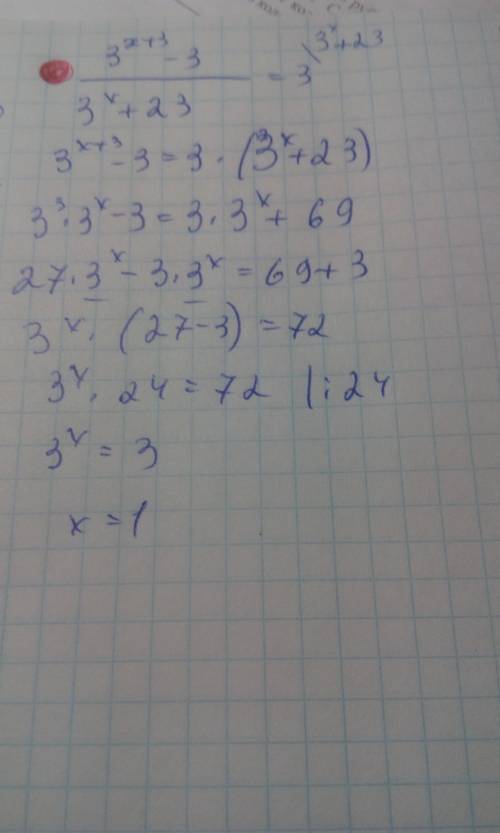 (3^{x+3} - 3) / (3^x + 23) = 3 \ 3^x + 23
3^{x+3} - 3 = 3 · (3^x + 23)
3^3 · 3^x - 3 = 3 · 3^x + 69
27 · 3^x - 3 · 3^x = 69 + 3
3^x · (27 - 3) = 72
3^x · 24 = 72 | : 24
3^x = 3
x = 1